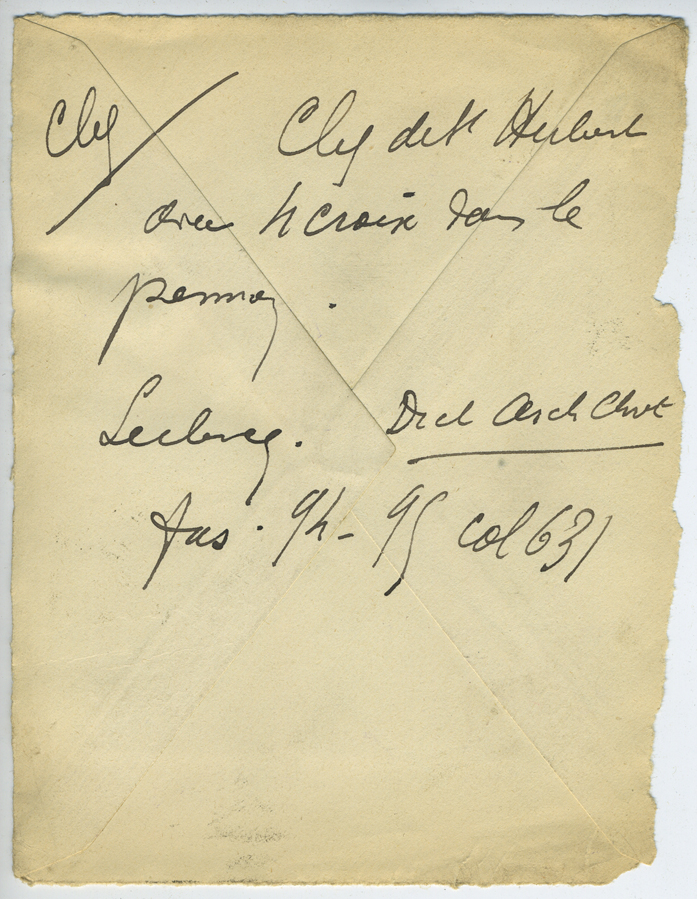 Clef / Clef de St Hubert
avec 4 croix dans le
panneau .
Leclercq. Dict Arch Chret
fas. 94-95 col 631